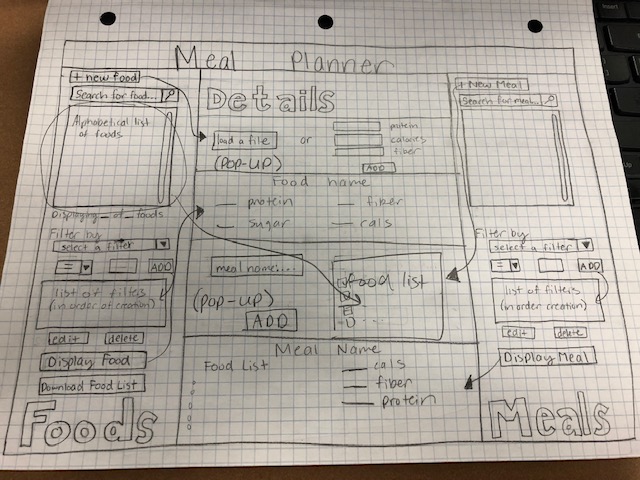 Meal Planner
+ new food
Search for food...
Alphabetical list
of foods
Displaying _ of _ foods
Filter by
select a filter
=
ADD
list of filters
(in order of creation)
edit
delete
Display Food
Download Food List
Foods
Details
load a file
or
protein
calories
fiber
(POP-UP)
ADD
Food name
protein
fiber
sugar
cals
meal name....
food list
(POP-UP)
ADD
Meal Name
Food List
cals
fiber
protein
+ New Meal
Search for meal...
Filter by
select a filter
=
ADD
list of filters
(in order creation)
edit
delete
Display Meal
Meals